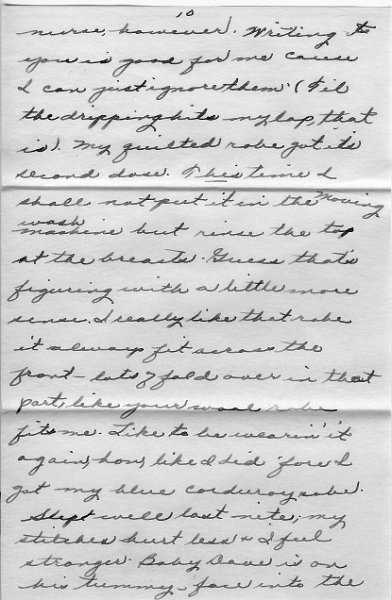 10
nurse, however. Writing to
you is good for me cause
I can just ignore them (Til
the dripping hits my lap, that
is). My quilted robe got its
second dose. This time I
shall not put it in the moving
wash
machine but rinse the top
at the breasts. Guess that's
figuring with a little more
sense. I really like that robe
it always fit across the
front - lots of fold over in that
part like your wool robe
fits me. Like to be wearin' it
again, hon, like I did 'fore I
got my blue corduroy robe.
Slept well last nite; my
stitches hurt less & I feel
stronger. Baby Dave is on
his tummy - face into the